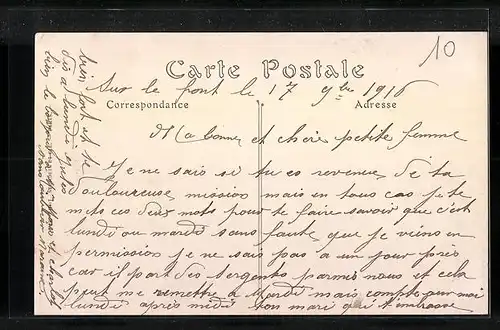 10
Carte Postale
Sur le front le 17 9bre 1916
Correspondance
Adresse
Ma bonne et chère petite femme
Je ne sais si tu es revenue de ta
douloureuse mission mais en tous cas je te
mets ces deux mots pour te faire savoir que c'est
lundi ou mardi sans faute que je viens en
permission je ne sais pas a un jour près
car il part des sergents parmis nous et cela
peut me remettre a Mardi mais compte sur moi
lundi après midi ton mari qui t'embrasse
bien fort et a
dis a lundi
bien le